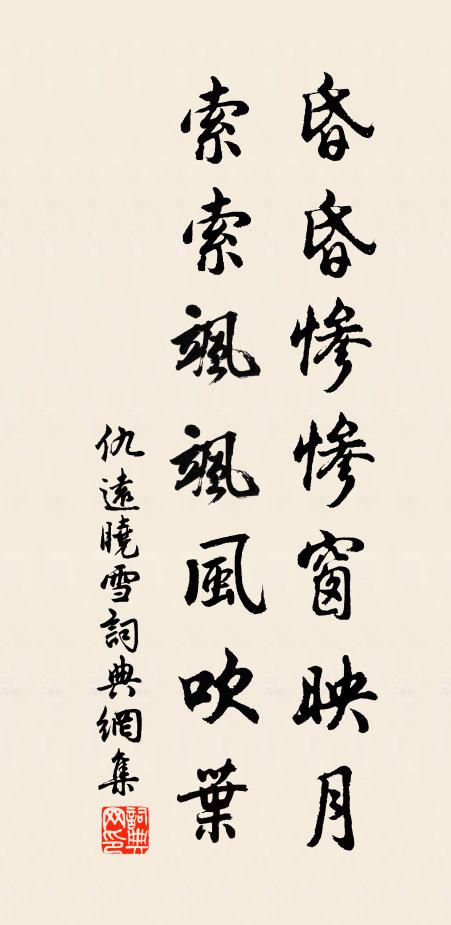 昏昏慘慘窗映月
索索颯颯風吹葉
仇遠曉雪詞典網集
詞典
网印